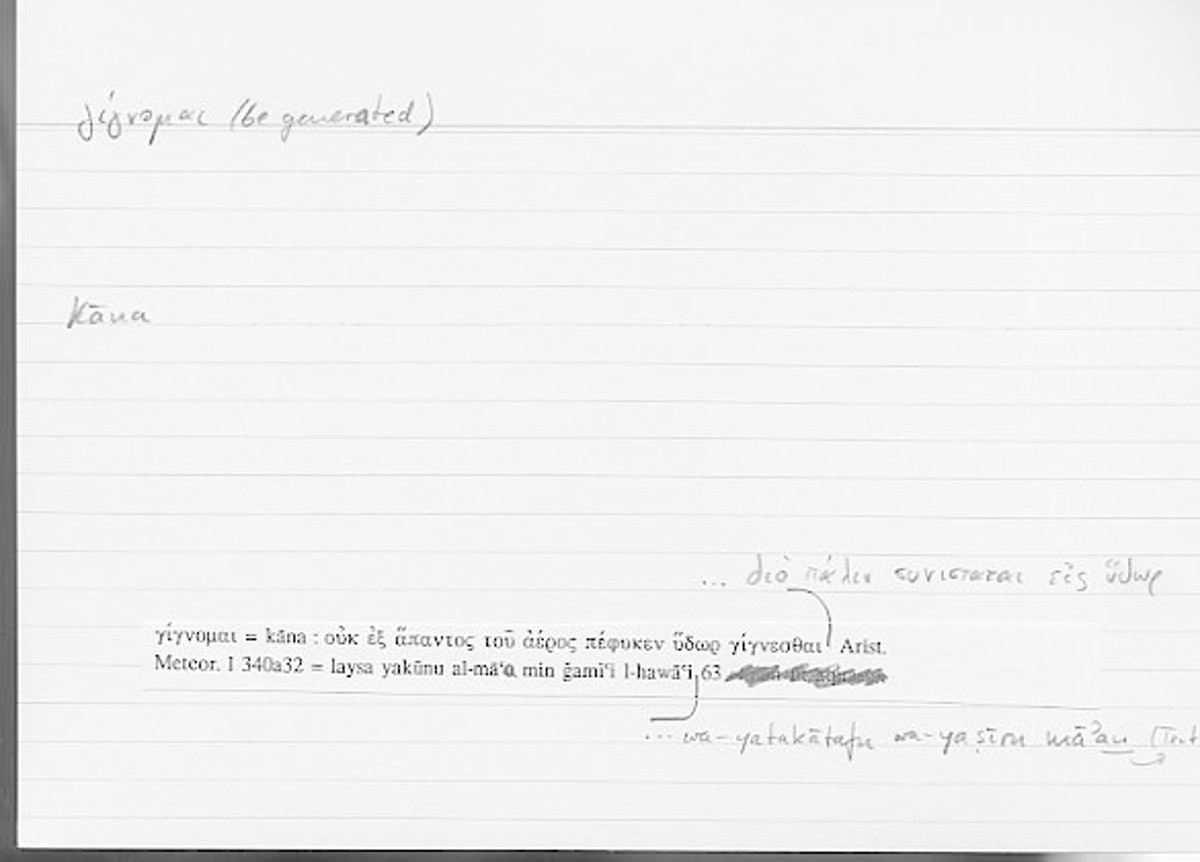 γίγνομαι (be generated)
kāna
... διὸ πάλιν συνισταται εἰς ὕδωρ
γίγνομαι = kāna : οὐκ ἐξ ἅπαντος τοῦ ἀέρος πέφυκεν ὕδωρ γίγνεσθαι Arist.
Meteor. I 340a32 = laysa yakūnu al-mā'a min ǧamī'i l-hawā'i 63
... wa-yatakātafu wa-yaṣīru māʾan (Text